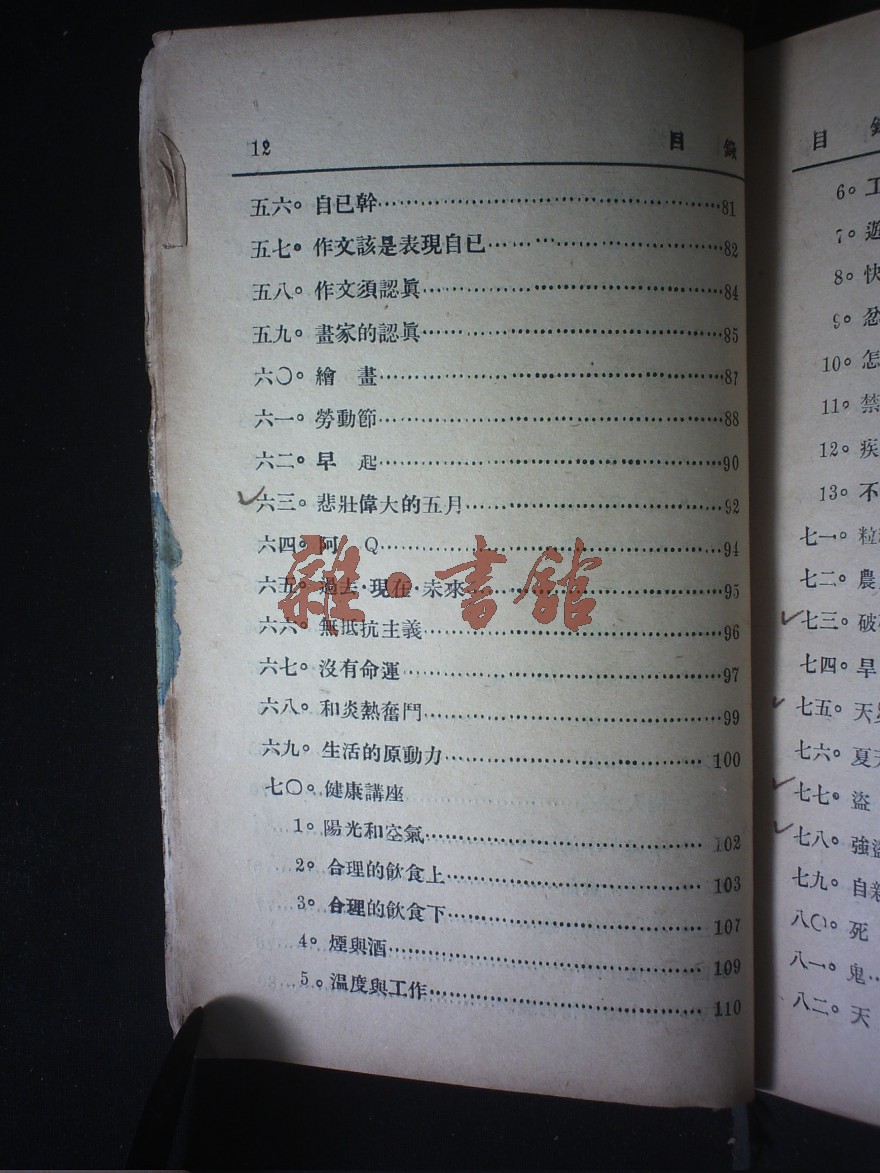 12 目錄
五六。自已幹……81
五七。作文該是表現自已……82
五八。作文須認眞……84
五九。畫家的認眞……85
六〇。繪　畫……87
六一。勞動節……88
六二。早　起……90
六三。悲壯偉大的五月……92
六四。阿　Q……94
六五。過去·現在·未來……95
六六。無抵抗主義……96
六七。沒有命運……97
六八。和炎熱奮鬥……99
六九。生活的原動力……100
七〇。健康講座
1。陽光和空氣……102
2。合理的飲食上……103
3。合理的飲食下……107
4。煙與酒……109
5。温度與工作……110
雜·書館
目錄
6。工
7。遊
8。快
9。忿
10。怎
11。禁
12。疾
13。不
七一。粒
七二。農
七三。破
七四。旱
七五。天
七六。夏天
七七。盜
七八。強盜
七九。自
八〇。死
八一。鬼……
八二。天